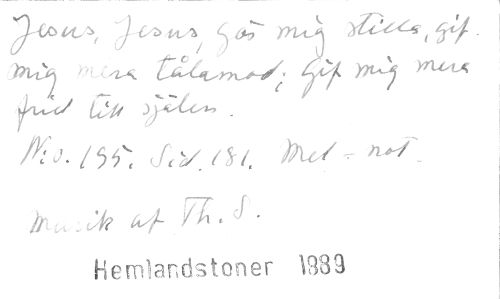 Jesus, Jesus, gör mig stilla, gif
mig mera tålamod; gif mig mera
frid till själen.
N:o. 195. Sid. 181. Mel = not.
Musik af Th. S.
Hemlandstoner 1889